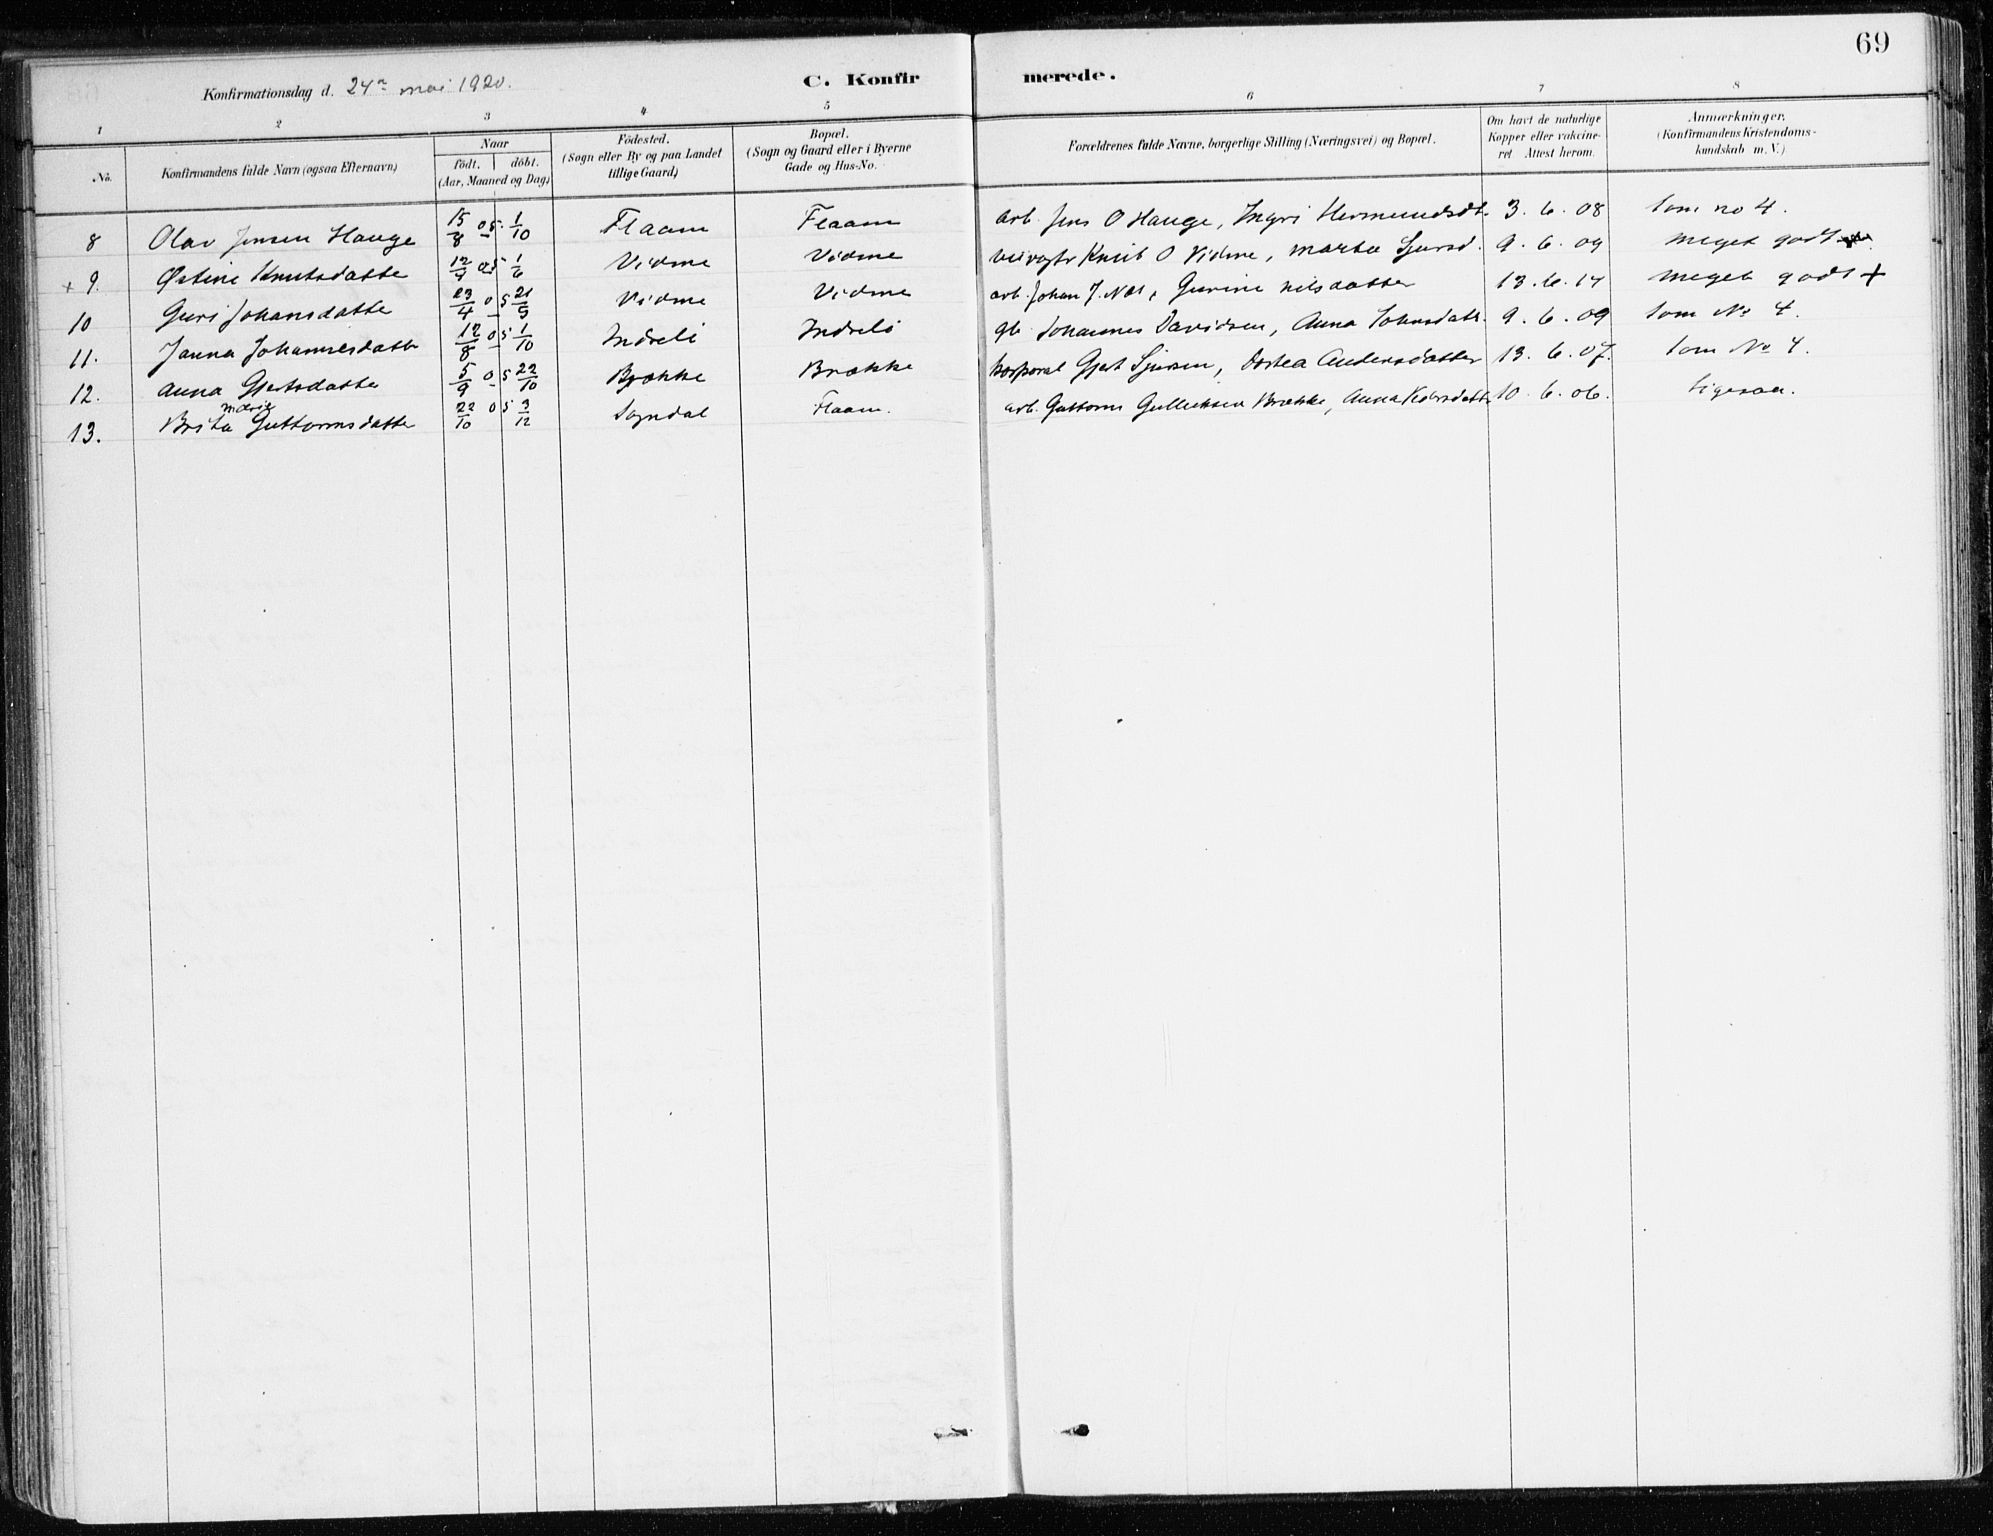 69
Konfirmationsdag d. 24de mai 1920.
C. Konfir merede.
1 2 3 4 5 6 7 8
No.
Konfirmandens fulde Navn (ogsaa Efternavn)
Naar
födt. döbt.
(Aar, Maaned og Dag)
Födested.
(Sogn eller By og paa Landet
tillige Gaard)
Bopæl.
(Sogn og Gaard eller i Byerne
Gade og Hus-No.
Forældrenes fulde Navne, borgerlige Stilling (Næringsvei) og Bopæl.
Om havt de naturlige
Kopper eller vakcine-
ret Attest herom.
Anmærkninger.
(Konfirmandens Kristendoms-
kundskab m. V.)
8 Olav Jensen Hauge 15/8 05 1/10 Flaam Flaam arb. Jens O Hauge, Ingri Hermundsdt. 3. 6. 08 Som no 4.
+ 9. Østine Knutsdatte 05 1/6 Vidme Vidme Knut O Vidme, Marta Sjursd. 9. 6. 09 meget godt
10 Guri Johansdatte 23/4 05 21/5 Vidme Vidme arb. Johan J. Gurine Nilsdatter 13. 6. 17 meget godt +
11. Janna Johannesdatte 12/8 05 1/10 Indreli Indreli gb. Johannes Davidsen, Anna 9. 6. 09 Som No 4.
12. Anna Gjertsdatte 5/9 05 22/10 Brække Brække korporal Gjert Sjursen, Dortea Andersdatter 13. 6. 07. Som No 4.
13. Brita Marie Guttormsdatte 22/10 05 3/12 Sogndal Flaam. arb. Guttorm Gulleiksen Brække, Anna Pedersdatt. 10. 6. 06. Ligesaa.